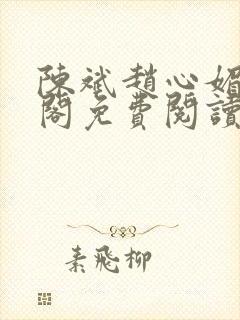 陳斌趙心媚
閣免費閱讀
素飛柳